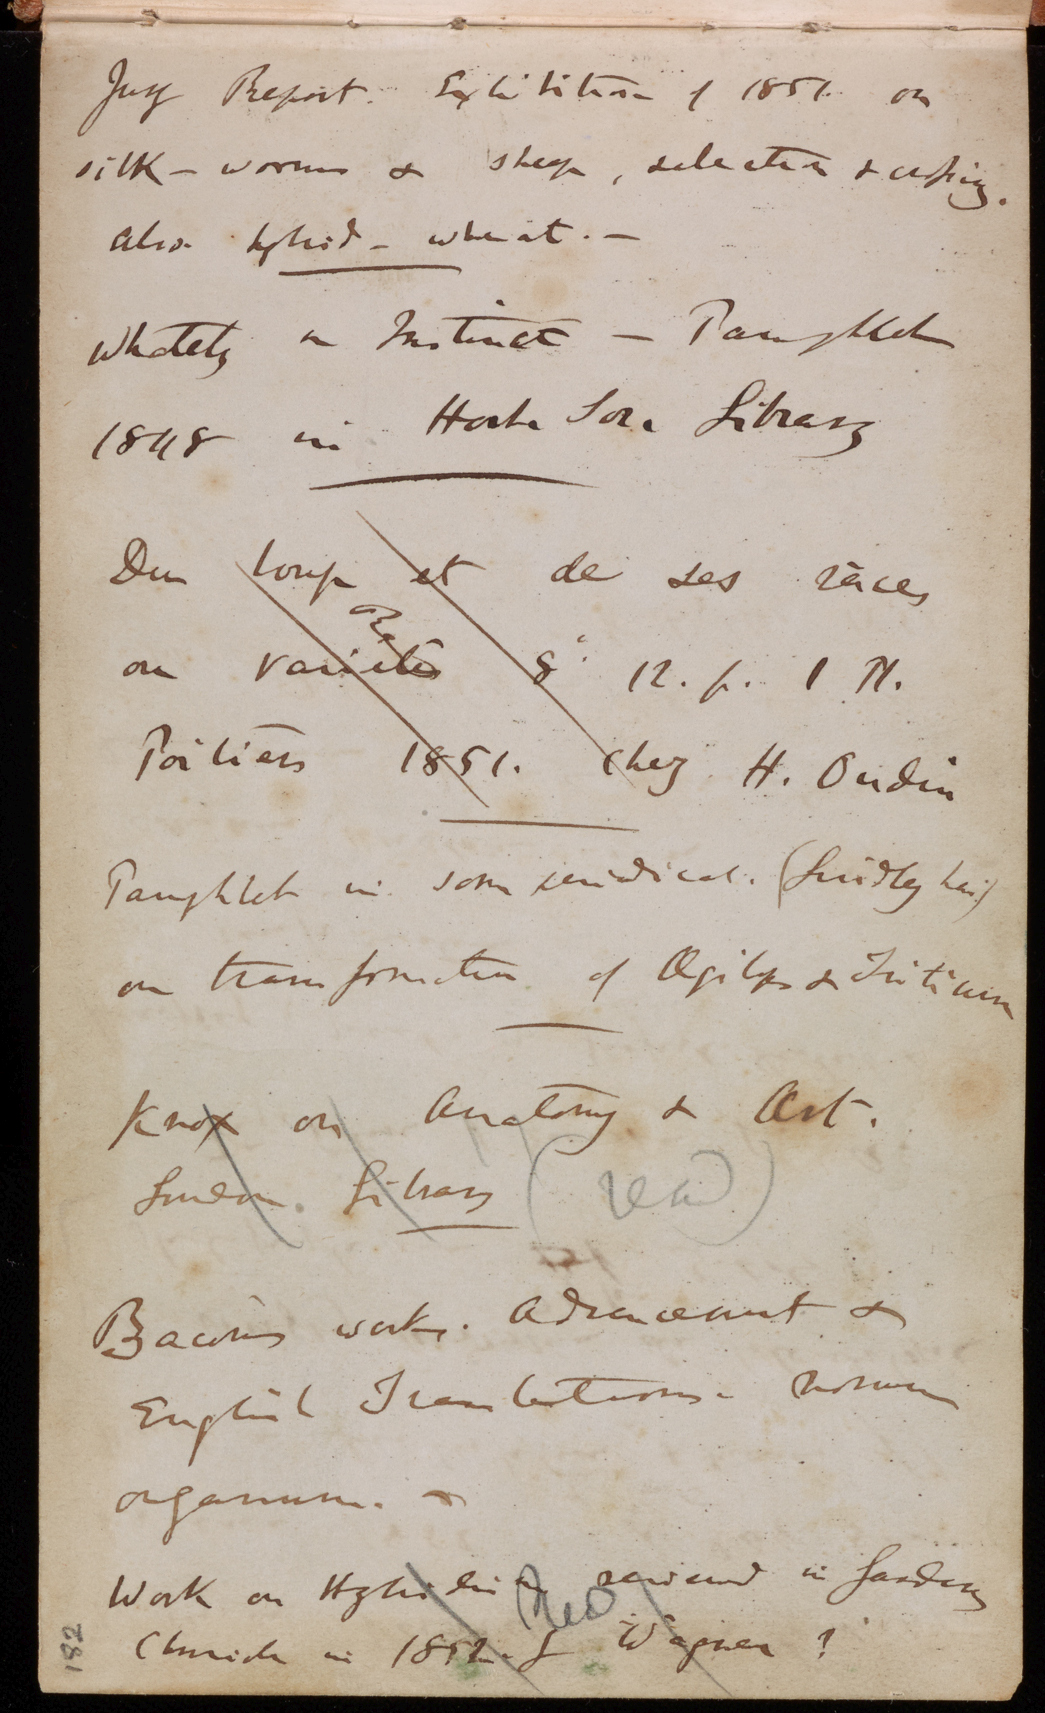 Jury Report. Exhibition of 1851. on
silk-worms & sheep, selection & crossing.
Also hybrid-wheat.—
Whately on Instinct — Pamphlet
1848 in Hort. Soc. Library
Du Loup et de ses races
Read
ou variétés 8º. 12. p. 1 Pl.
Poitiers 1851. Chez H. Oudin
Pamphlet in some periodical. (Lindley has)
on transformation of Ægilops & Triticum
Knox on Anatomy & Art.
London. Library (read)
Bacon's works. Advancement &
English Translations. novum
organum.
Work on Hybridism reviewed in Gardeners
(Read)
Chronicle in 1852. by Wagner?
182